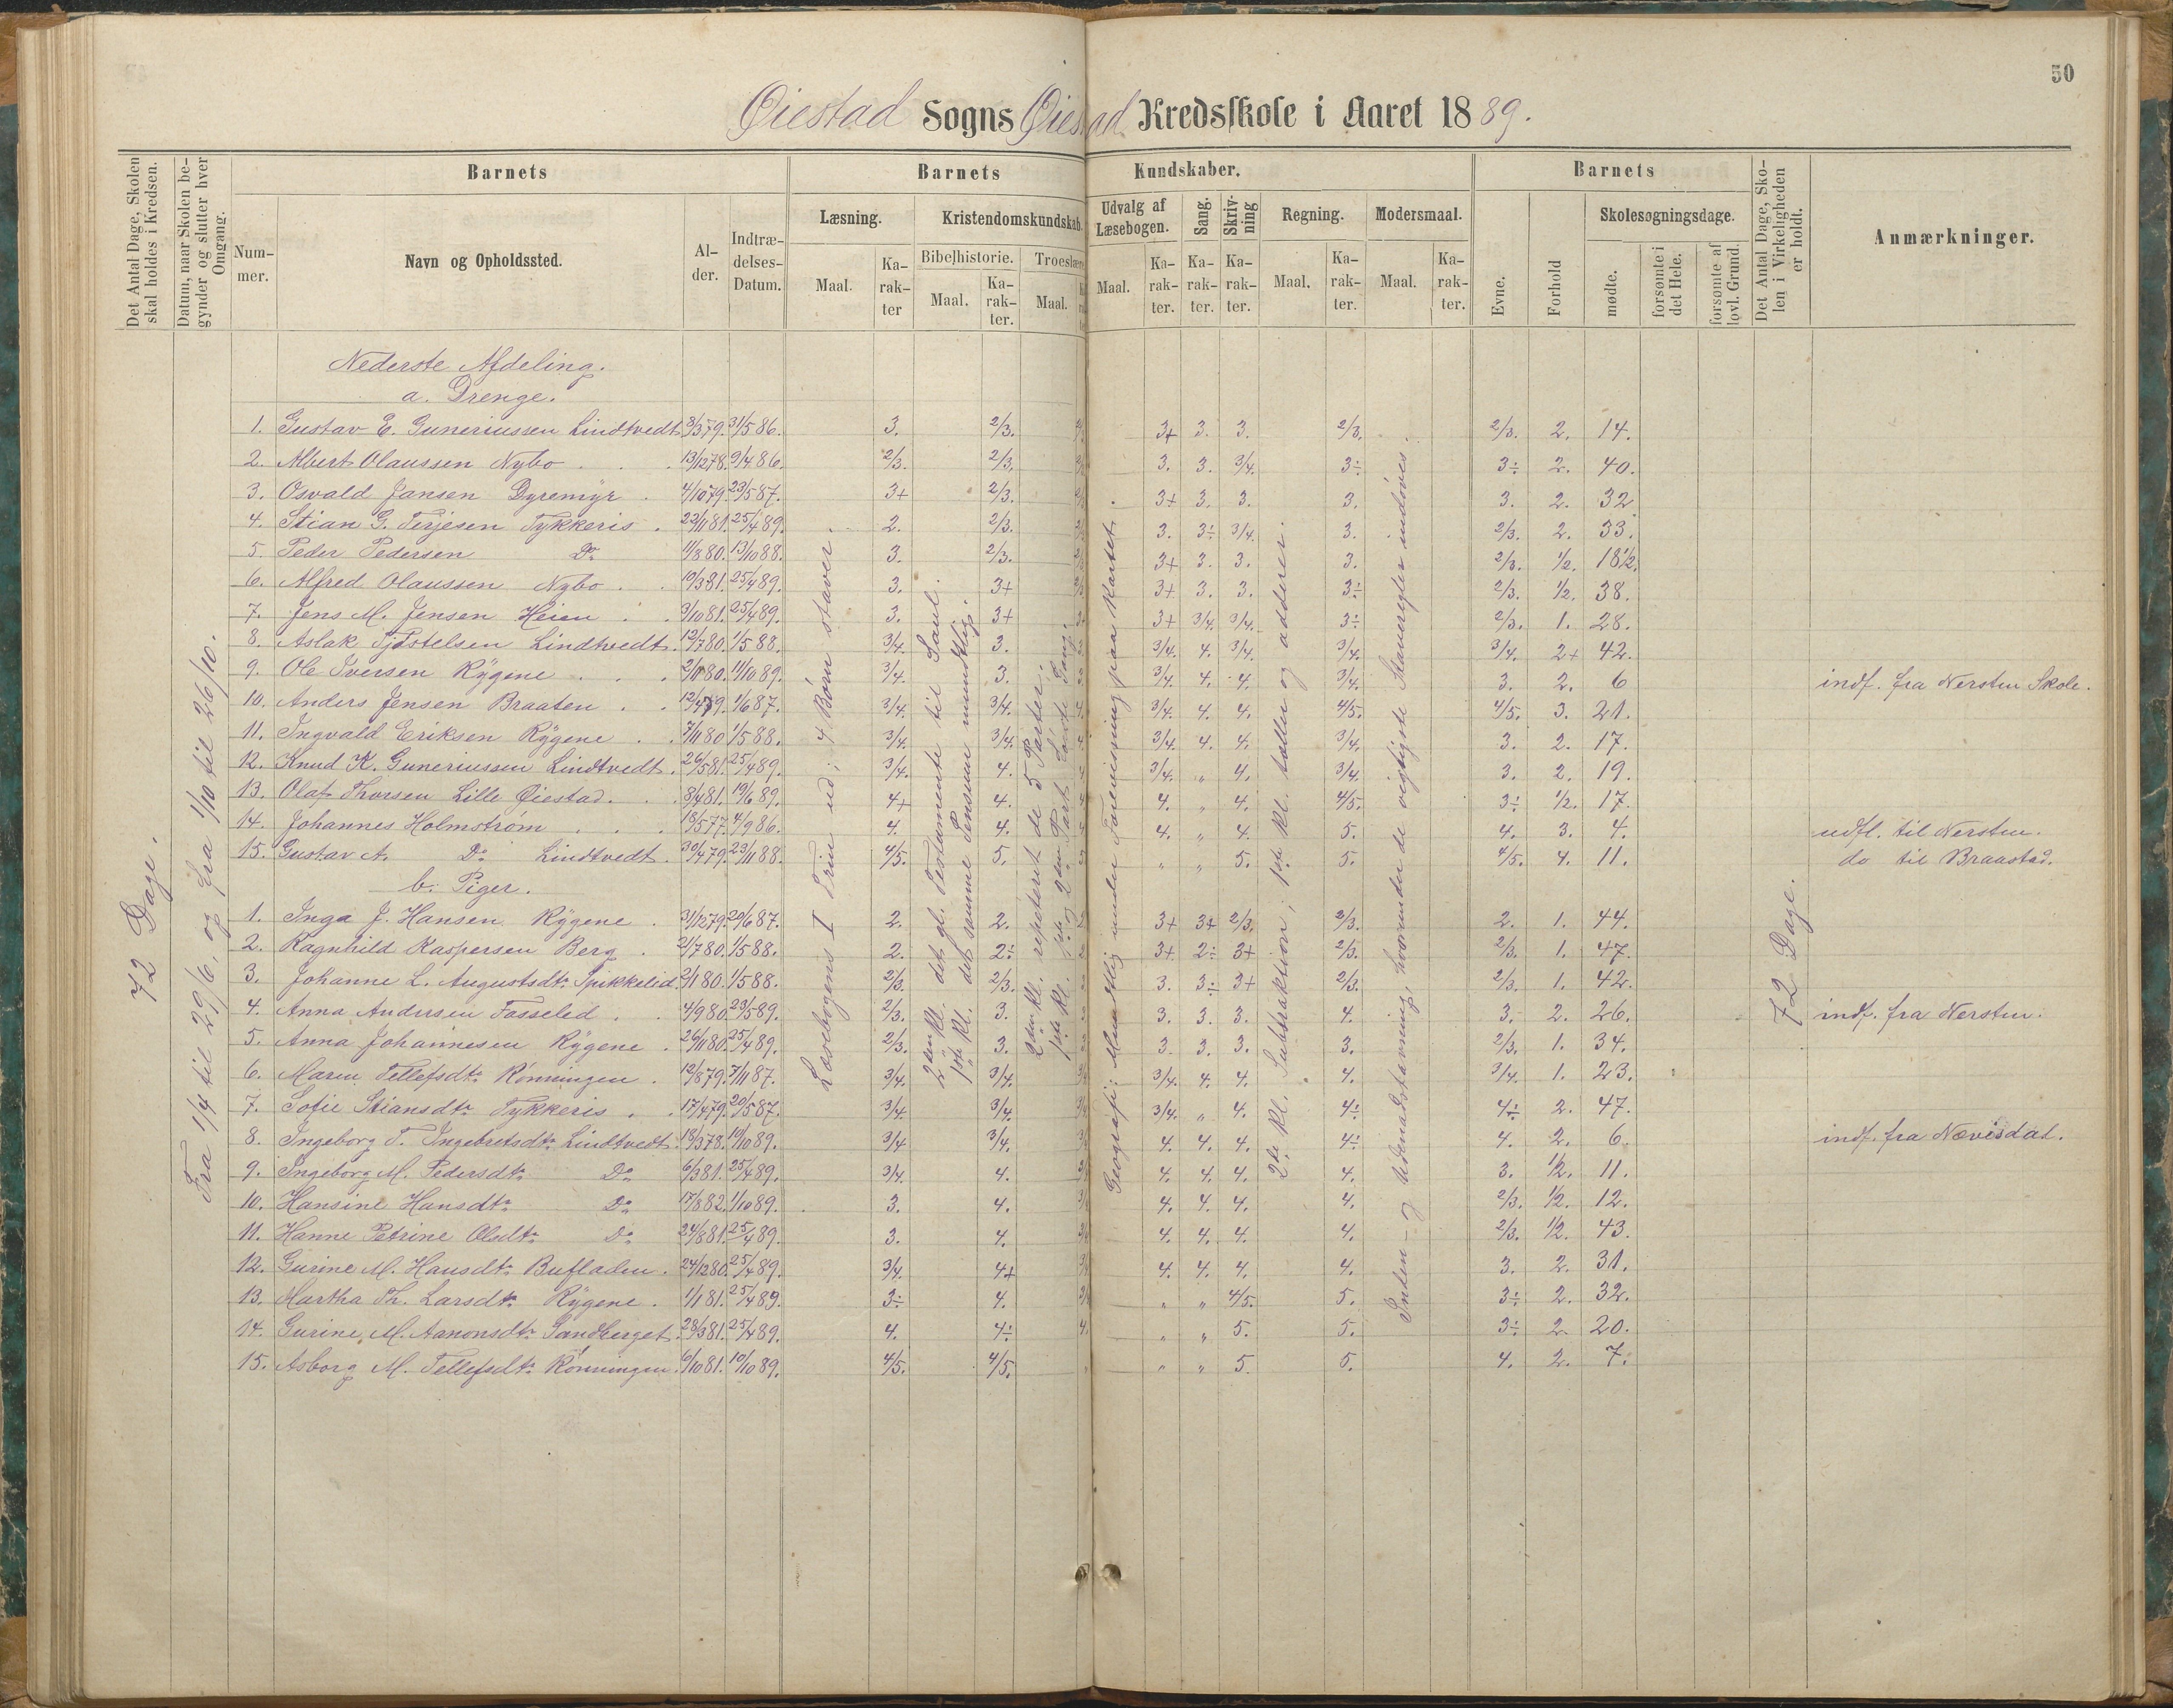 50
Øiestad Sogns Øiestad Kredsskole i Aaret 1889.
Det Antal Dage, Skolen skal holdes i Kredsen.
Datum, naar Skolen begynder og slutter hver Omgang.
Barnets
Barnets Kundskaber.
Barnets
Det Antal Dage, Skolen i Virkeligheden er holdt.
Anmærkninger.
Nummer.
Navn og Opholdssted.
Alder.
Indtrædelses-Datum.
Læsning.
Kristendomskundskab.
Udvalg af Læsebogen.
Sang.
Skrivning
Regning.
Modersmaal.
Evne.
Forhold
Skolesøgningsdage.
Bibelhistorie.
Troeslære
Maal.
Karakter
Maal.
Karakter.
Maal.
Maal.
Karakter.
Karakter.
Karakter.
Maal.
Karakter.
Maal.
Karakter.
mødte.
forsømte i det Hele.
forsømte af lovl. Grund.
72 Dage.
Fra 1/4 til 29/6, og fra 1/10 til 26/10.
Læsebogens I Trin ud; 4 Børn staver.
2den Kl. det gl. Testamente til Saul.
1ste Kl. det samme Pensum mundtlig.
2den Kl. repeteret de 5 Parter.
1ste Kl. 1ste og 2den Part
Geografi: Mundtlig under Forevisning paa Kartet.
2de Kl. Subtraktion; 1ste Kl. tæller og adderer.
Inden- og Udenadstavning, hvorunder de vigtigste Staveregler indøves.
72 Dage.
Nederste Afdeling.
a. Drenge.
1. Gustav E. Guneriussen Lindtvedt 3/3 79. 31/5 86. 3. 2/3. 3+ 3. 3. 2/3. 2/3. 2. 14.
2. Albert Olaussen Nybo 13/12 78. 9/4 86. 2/3. 2/3. 3. 3. 3/4. 3÷ 3÷ 2. 40.
3. Osvald Jansen Dyremyr 4/10 79. 23/5 87. 3+ 2/3. 3+ 3. 3. 3. 3. 2. 32
4. Stian G. Terjesen Tykkeris 22/11 81. 25/4 89. 2. 2/3. 3. 3÷ 3/4. 3. 2/3. 2. 33.
5. Peder Pedersen Do 11/8 80. 13/10 88. 3. 2/3. 3+ 3. 3. 3. 2/3. 1/2. 18 1/2.
6. Alfred Olaussen Nybo 10/3 81. 25/4 89. 3. 3+ 3+ 3. 3. 3÷ 2/3. 1/2. 38.
7. Jens M. Jensen Heien 3/10 81. 25/4 89. 3. 3+ 3+ 3/4. 3/4. 3÷ 2/3. 1. 28.
8. Aslak Tjøstelsen Lindtvedt. 12/7 80. 1/5 88. 3/4. 3. 3/4. 4. 3/4. 3/4. 3/4. 2+ 42.
9. Ole Iversen Rygene 2/11 80. 11/10 89. 3/4. 3. 3/4. 4. 4. 3/4. 3. 2. 6 indf. fra Nersten Skole.
10. Anders Jensen Braaten 12/4 79. 1/6 87. 3/4. 3/4. 3/4. 4. 4. 4/5. 4/5. 3. 21.
11. Ingvald Eriksen Rygene 7/11 80 1/5 88. 3/4. 3/4. 3/4. 4. 4. 3/4. 3. 2. 17.
12. Knud K. Guneriussen Lindtvedt. 26/5 81. 25/4 89. 3/4. 4. 3/4. „ 4. 3/4. 3. 2. 19.
13. Olaf Thorsen Lille Øiestad. 8/4 81. 19/6 89. 4+ 4. 4. „ 4. 4/5. 3÷ 1/2. 17.
14. Johannes Holmstrøm 18/5 77. 4/9 86. 4. 4. 4. „ 4. 5. 4. 3. 4. udfl. til Nersten.
15. Gustav A. Do Lindtvedt. 30/4 79. 23/11 88. 4/5. 5. „ „ 5. 5. 4/5. 4. 11. do til Braastad.
b. Piger.
1. Inga J. Hansen Rygene 31/12 79. 29/6 87. 2. 2. 3+ 3+ 2/3. 2/3. 2. 1. 44.
2. Ragnhild Kaspersen Berg 21/7 80. 1/5 88. 2. 2÷ 3+ 2÷ 3+ 2/3. 2/3. 1. 47.
3. Johanne L. Augustsdtr. Spikkelid. 2/11 80. 1/5 88. 2/3. 2/3. 3. 3÷ 3+ 2/3. 2/3. 1. 42.
4. Anna Andersen Fosselid 4/9 80. 23/5 89. 2/3. 3. 3. 3. 3. 4. 3. 2. 26. indf. fra Nersten.
5. Anna Johannesen Rygene 26/11 80. 25/4 89. 2/3. 3. 3. 3. 3. 3. 2/3. 1. 34.
6. Maren Tellefsdtr. Rønningen 12/8 79. 7/11 87. 3/4. 3/4. 3/4. 4. 4. 4. 3/4. 1. 23.
7. Sofie Stiansdtr. Tykkeris 17/4 79. 20/5 87. 3/4. 3/4. 3/4. „ 4. 4÷ 4÷ 2. 47.
8. Ingeborg T. Ingebretsdtr. Lindtvedt. 18/3 78. 19/10 89. 3/4 3/4. 4. 4. 4. 4÷ 4. 2. 6. indf. fra Nævisdal.
9. Ingeborg M. Pedersdtr. Do 6/3 81. 25/4 89. 3/4. 4. 4. 4. 4. 4. 3. 1/2. 11.
10. Hansine Hansdtr. Do 17/8 82. 1/10 89. 3. 4. 4. 4. 4. 4. 2/3. 1/2. 12.
11. Hanne Petrine Olsdtr. Do 24/8 81. 25/4 89. 3. 4. 4. 4. 4. 4. 2/3. 1/2. 43.
12. Gurine M. Hansdtr. Bufladen. 24/12 80. 25/4 89. 3/4. 4+ 4. 4. 4. 4. 3. 2. 31.
13. Martha Th. Larsdtr. Rygene. 1/1 81. 25/4 89. 3÷ 4. „ „ 4/5. 5. 3÷ 2. 32.
14. Gurine M. Aanonsdtr. Sandberget. 28/3 81. 25/4 89. 4. 4÷ „ „ 5. 5. 3÷ 2. 20.
15. Asborg M. Tellefsdtr. Rønningen. 6/10 81. 10/10 89. 4/5. 4/5. „ „ 5. 5. 4. 2. 7.